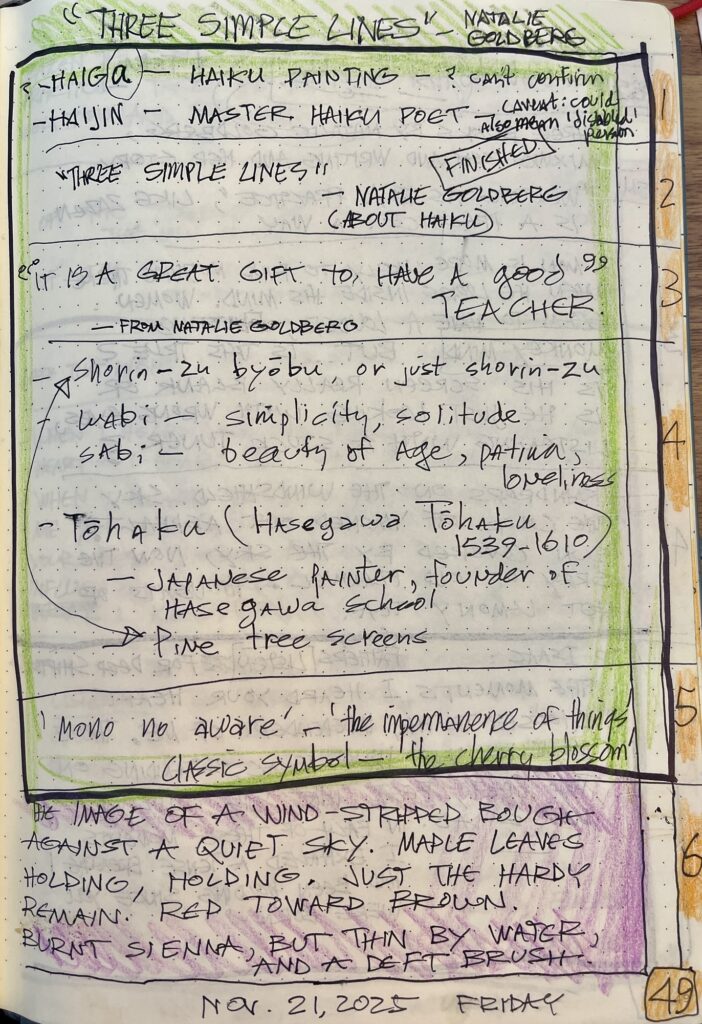 "THREE SIMPLE LINES" – NATALIE GOLDBERG
? – HAIGa — HAIKU PAINTING – ? can't confirm
1
– HAIJIN — MASTER HAIKU POET – caveat: could also mean 'disabled' person
FINISHED
"THREE SIMPLE LINES"
2
— NATALIE GOLDBERG
(ABOUT HAIKU)
"IT IS A GREAT GIFT TO HAVE A good
TEACHER."
3
— FROM NATALIE GOLDBERG
– Shorin-zu byōbu or just shorin-zu
– wabi — simplicity, solitude
4
sabi — beauty of Age, patina,
loneliness
– Tōhaku (Hasegawa Tōhaku
1539-1610)
— JAPANESE painter, founder of
Hasegawa school
Pine tree screens
5
'Mono no aware' – 'the impermanence of things'
Classic symbol — the cherry blossom'
THE IMAGE OF A WIND-STRIPPED BOUGH
AGAINST A QUIET SKY. MAPLE LEAVES
6
HOLDING, HOLDING. JUST THE HARDY
REMAIN. RED TOWARD BROWN.
BURNT SIENNA, BUT THIN BY WATER,
AND A DEFT BRUSH.
NOV. 21, 2025 FRIDAY
49